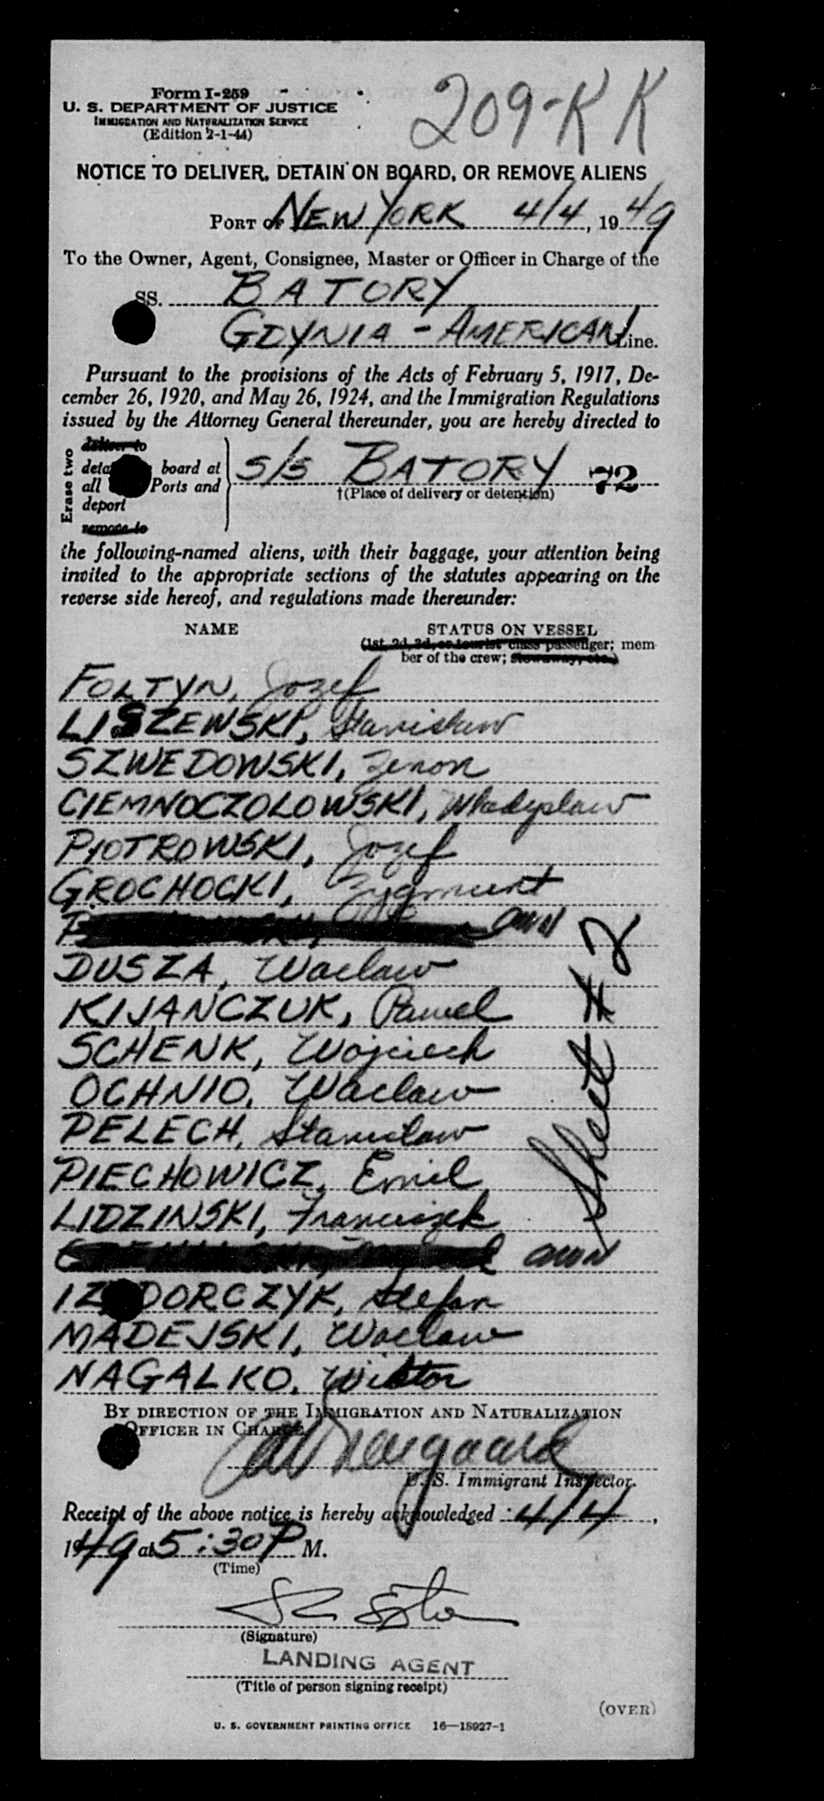 Form I-259
U. S. DEPARTMENT OF JUSTICE
IMMIGRATION AND NATURALIZATION SERVICE
(Edition 2-1-44)
209-KK
NOTICE TO DELIVER, DETAIN ON BOARD, OR REMOVE ALIENS
PORT OF NEW YORK 4/4, 1949
To the Owner, Agent, Consignee, Master or Officer in Charge of the
SS. BATORY
GDYNIA - AMERICAN Line.
Pursuant to the provisions of the Acts of February 5, 1917, De-
cember 26, 1920, and May 26, 1924, and the Immigration Regulations
issued by the Attorney General thereunder, you are hereby directed to
Erase two
deliver to
board at
all Ports and
deport
remove to
S/S BATORY 72
†(Place of delivery or detention)
the following-named aliens, with their baggage, your attention being
invited to the appropriate sections of the statutes appearing on the
reverse side hereof, and regulations made thereunder:
NAME STATUS ON VESSEL
(1st, 2d, 3d, or tourist class passenger; mem-
ber of the crew; stowaway, etc.)
FOLTYN, Jozef
LISZEWSKI, Stanislaw
SZWEDOWSKI, Zenon
CIEMNOCZOLOWSKI, Wladyslaw
PIOTROWSKI, Jozef
GROCHOCKI, Zygmunt
DUSZA, Waclaw
KIJANCZUK, Pawel
SCHENK, Wojciech
OCHNIO, Waclaw
PELECH, Stanislaw
PIECHOWICZ, Emil
LIDZINSKI, Franciszek
IZ DORCZYK, Stefan
MADEJSKI, Waclaw
NAGALKO, Wiktor
Sheet #2
BY DIRECTION OF THE IMMIGRATION AND NATURALIZATION
OFFICER IN CHARGE
U. S. Immigrant Inspector.
Receipt of the above notice is hereby acknowledged 4/4,
1949 at 5:30 P M.
(Time)
(Signature)
LANDING AGENT
(Title of person signing receipt)
(OVER)
U. S. GOVERNMENT PRINTING OFFICE 16—18927-1